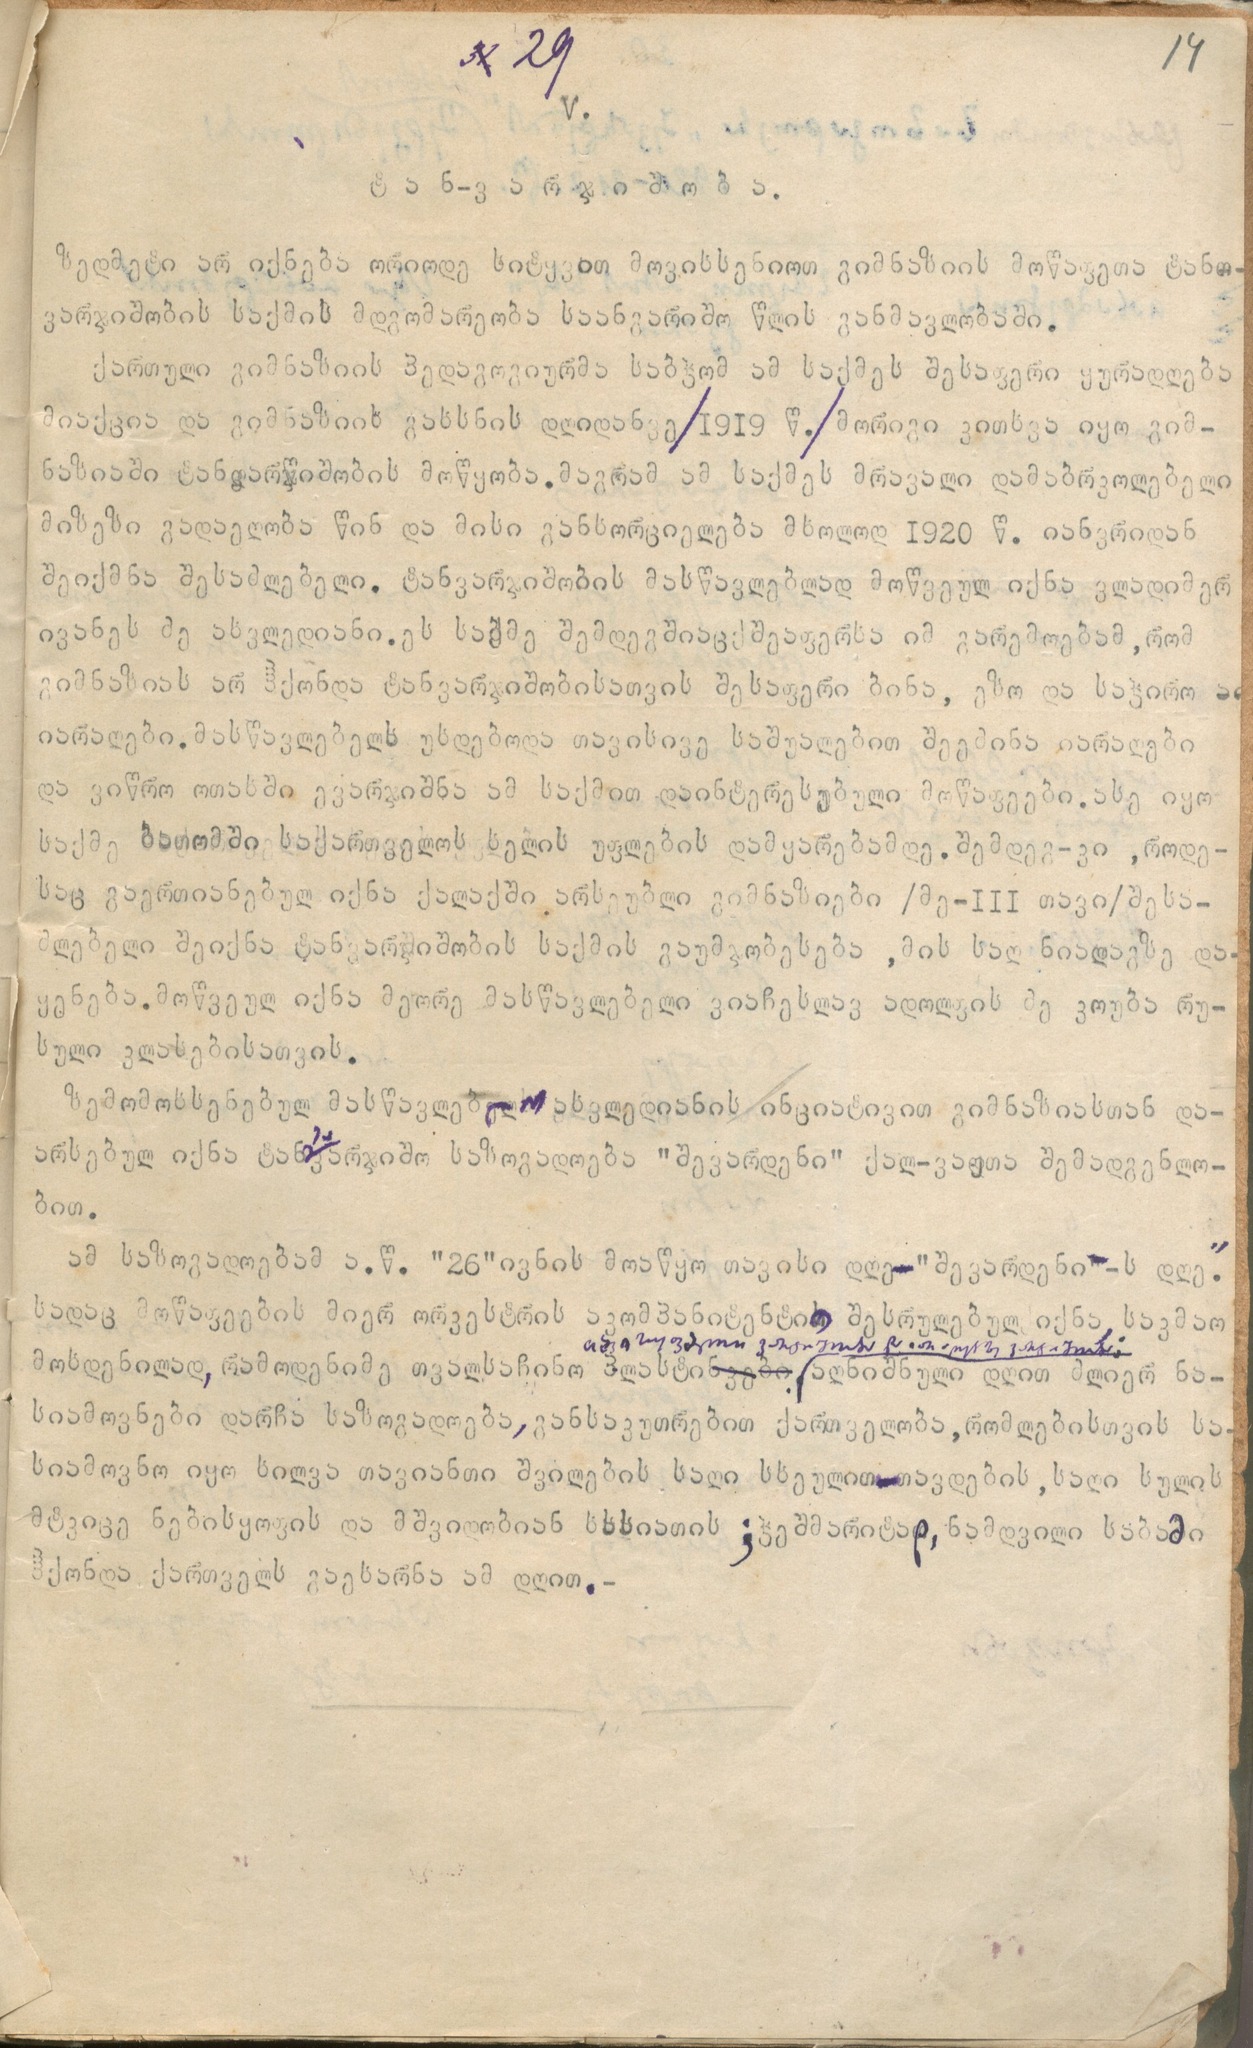 29
14
V.
ტ ა ნ-ვ ა რ ჯ ი შ ო ბ ა.
ზედმეტი არ იქნება ორიოდე სიტყვით მოვიხსენიოთ გიმნაზიის მოწაფეთა ტანთ-
ვარჯიშობის საქმის მდგომარეობა საანგარიშო წლის განმავლობაში.
ქართული გიმნაზიის პედაგოგიურმა საბჭომ ამ საქმეს შესაფერი ყურადღება
მიაქცია და გიმნაზიის გახსნის დღიდანვე/1919 წ./მორიგი კითხვა იყო გიმ-
ნაზიაში ტანვარჯიშობის მოწყობა.მაგრამ ამ საქმეს მრავალი დამაბრკოლებელი
მიზეზი გადაეღობა წინ და მისი განხორციელება მხოლოდ 1920 წ. იანვრიდან
შეიქმნა შესაძლებელი. ტანვარჯიშობის მასწავლებლად მოწვეულ იქნა ვლადიმერ
ივანეს ძე ასვლედიანი.ეს საქმე შემდეგშიაც შეაფერხა იმ გარემოებამ,რომ
გიმნაზიას არ ჰქონდა ტანვარჯიშობისათვის შესაფერი ბინა, ეზო და საჭირო
იარაღები.მასწავლებელს უხდებოდა თავისივე საშუალებით შეეძინა იარაღები
და ვიწრო ოთახში ევარჯიშნა ამ საქმით დაინტერესებული მოწაფეები.ასე იყო
საქმე ბათომში საქართველოს ხელის უფლების დამყარებამდე.შემდეგ-კი ,როდე-
საც გაერთიანებულ იქნა ქალაქში არსეუბლი გიმნაზიები /მე-III თავი/შესა-
ძლებელი შეიქნა ტანვარჯიშობის საქმის გაუმჯობესება ,მის საღ ნიადაგზე და-
ყენება.მოწვეულ იქნა მეორე მასწავლებელი ვიაჩესლავ ადოლფის ძე კოუბა რუ-
სული კლასებისათვის.
ზემომოხსენებულ მასწავლებლ ასვლედიანის ინციატივით გიმნაზიასთან და-
არსებულ იქნა ტანვარჯიშო საზოგადოება "შევარდენი" ქალ-ვაჟთა შემადგენლო-
ბით.
ამ საზოგადოებამ ა.წ. "26"ივნის მოაწყო თავისი დღე-"შევარდენი"-ს დღე."
სადაც მოწაფეების მიერ ორკესტრის აკომპანიტენტით შესრულებულ იქნა საკმაო
მოხდენილად,რამოდენიმე თვალსაჩინო პლასტინკები. აღნიშნული დღით ძლიერ ნა-
სიამოვნები დარჩა საზოგადოება,განსაკუთრებით ქართველობა,რომლებისთვის სა-
სიამოვნო იყო ხილვა თავიანთი შვილების საღი სხეულით თავდების,საღი სულის
მტკიცე ნებისყოფის და მშვიდობიან ხასიათის ;ჭეშმარიტად,ნამდვილი საბაბი
ჰქონდა ქართველს გაეხარნა ამ დღით.-